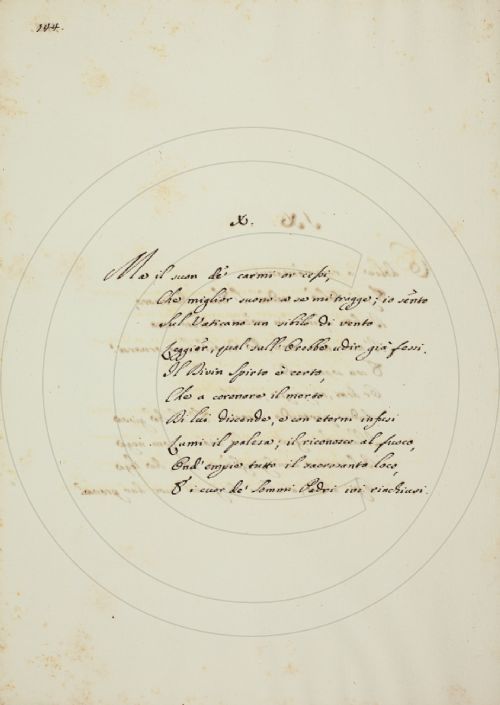 144.
X.
Ma il suon de' carmi or cessi,
Che miglior suono a se mi tragge; io sento
Sul Vaticano un sibilo di vento
Leggier, qual sull' Orebbe udir già fessi.
Il Divin Spirto è certo,
Che a coronare il merto
Di lui discende, e con eterni influssi
Lumi il palesa; il riconosco al fuoco,
Ond' empie tutto il sacrosanto loco,
E i cuor de' Sommi Padri ivi